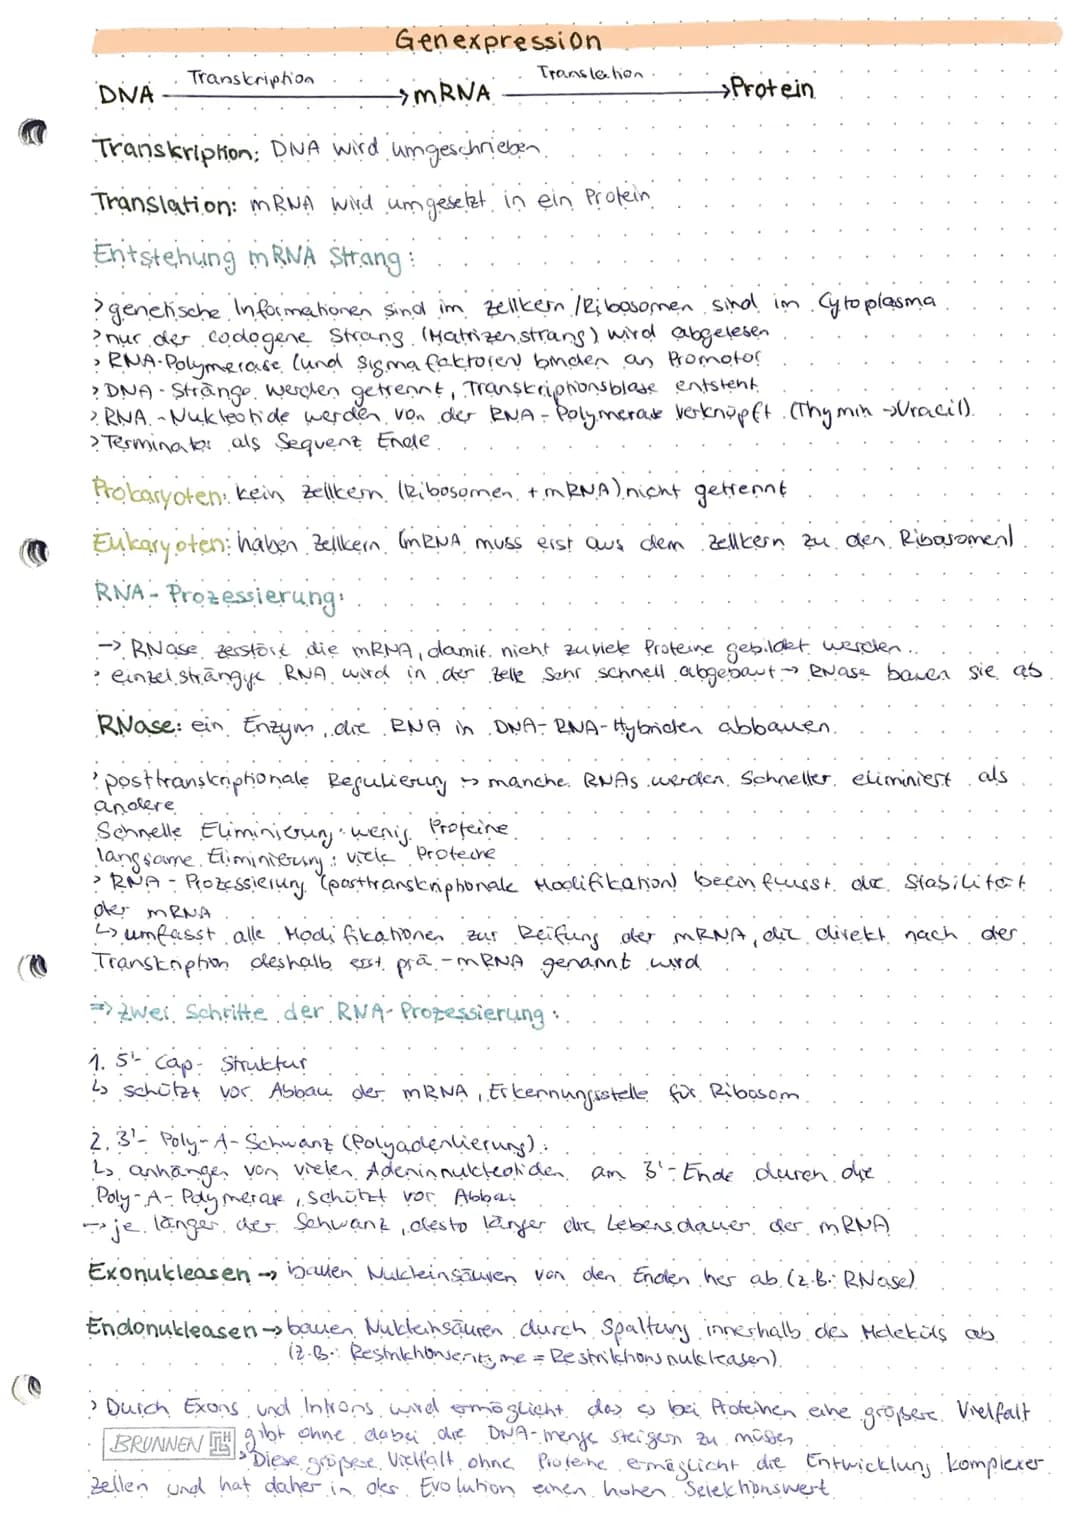 Genexpression
DNA Transkription → mRNA Translation → Protein
Transkription: DNA wird umgeschrieben.
Translation: mRNA wird umgesetzt in ein Protein
Entstehung mRNA Strang:
> genetische Informationen sind im Zellkern / Ribosomen sind im Cytoplasma
> nur der codogene Strang (Matrizenstrang) wird abgelesen
> RNA-Polymerase (und Sigmafaktoren) binden an Promotor
> DNA-Stränge werden getrennt, Transkriptionsblase entsteht
> RNA-Nukleotide werden von der RNA-Polymerase verknüpft (Thymin → Uracil)
> Terminator als Sequenz Ende
Prokaryoten: kein Zellkern (Ribosomen + mRNA) nicht getrennt
Eukaryoten: haben Zellkern (mRNA muss erst aus dem Zellkern zu den Ribosomen)
RNA-Prozessierung:
→ RNase zerstört die mRNA, damit nicht zuviele Proteine gebildet werden
> einzelsträngige RNA wird in der Zelle sehr schnell abgebaut → RNase bauen sie ab
RNase: ein Enzym, die RNA in DNA-RNA-Hybriden abbauen
> posttranskriptionale Regulierung → manche RNAs werden schneller eliminiert als
andere
Schnelle Eliminierung: wenig Proteine
langsame Eliminierung: viele Proteine
> RNA-Prozessierung (posttranskriptionale Modifikation) beeinflusst die Stabilität
der mRNA
↳ umfasst alle Modifikationen zur Reifung der mRNA, die direkt nach der
Transkription deshalb erst prä-mRNA genannt wird
=> Zwei Schritte der RNA-Prozessierung:
1. 5'- Cap- Struktur
↳ schützt vor Abbau der mRNA, Erkennungsstelle für Ribosom
2. 3'- Poly-A-Schwanz (Polyadenlierung):
↳ anhängen von vielen Adeninnukleotiden am 3'-Ende durch die
Poly-A-Polymerase, schützt vor Abbau
→ je länger der Schwanz, desto länger die Lebensdauer der mRNA
Exonukleasen → bauen Nukleinsäuren von den Enden her ab (z.B.: RNase)
Endonukleasen → bauen Nukleinsäuren durch Spaltung innerhalb des Moleküls ab
(z.B.: Restriktionsenzyme = Restriktionsnukleasen)
> Durch Exons und Introns wird ermöglicht das es bei Proteinen eine größere Vielfalt
BRUNNEN gibt ohne dabei die DNA-menge steigern zu müssen
> Diese größere Vielfalt ohne Proteine ermöglicht die Entwicklung komplexer
Zellen und hat daher in der Evolution einen hohen Selektionswert